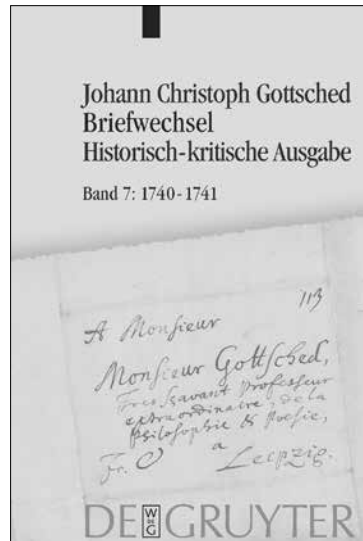 Johann Christoph Gottsched
Briefwechsel
Historisch-kritische Ausgabe
Band 7: 1740-1741
113
A Monsieur
Monsieur Gottsched,
Tres Sçavant Professeur
extraordinaire, de la
Philosophie & Poesie,
Fr. a
Leipzig.
DE GRUYTER